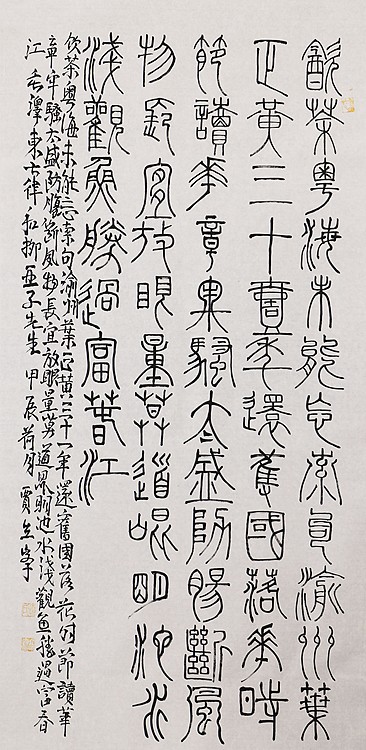 飲茶粵海未能忘索句渝州葉
正黃三十壹年還舊國落華時
節讀華章牢騷太盛防腸斷風
物長宜放眼量莫道昆明池水
淺觀魚勝過富春江
飲茶粵海未能忘索句渝州葉正黃三十一年還舊國落花時節讀華
章牢騷太盛防腸斷風物長宜放眼量莫道昆明池水淺觀魚勝過富春
江毛澤東七律和柳亞子先生甲辰荷月賈